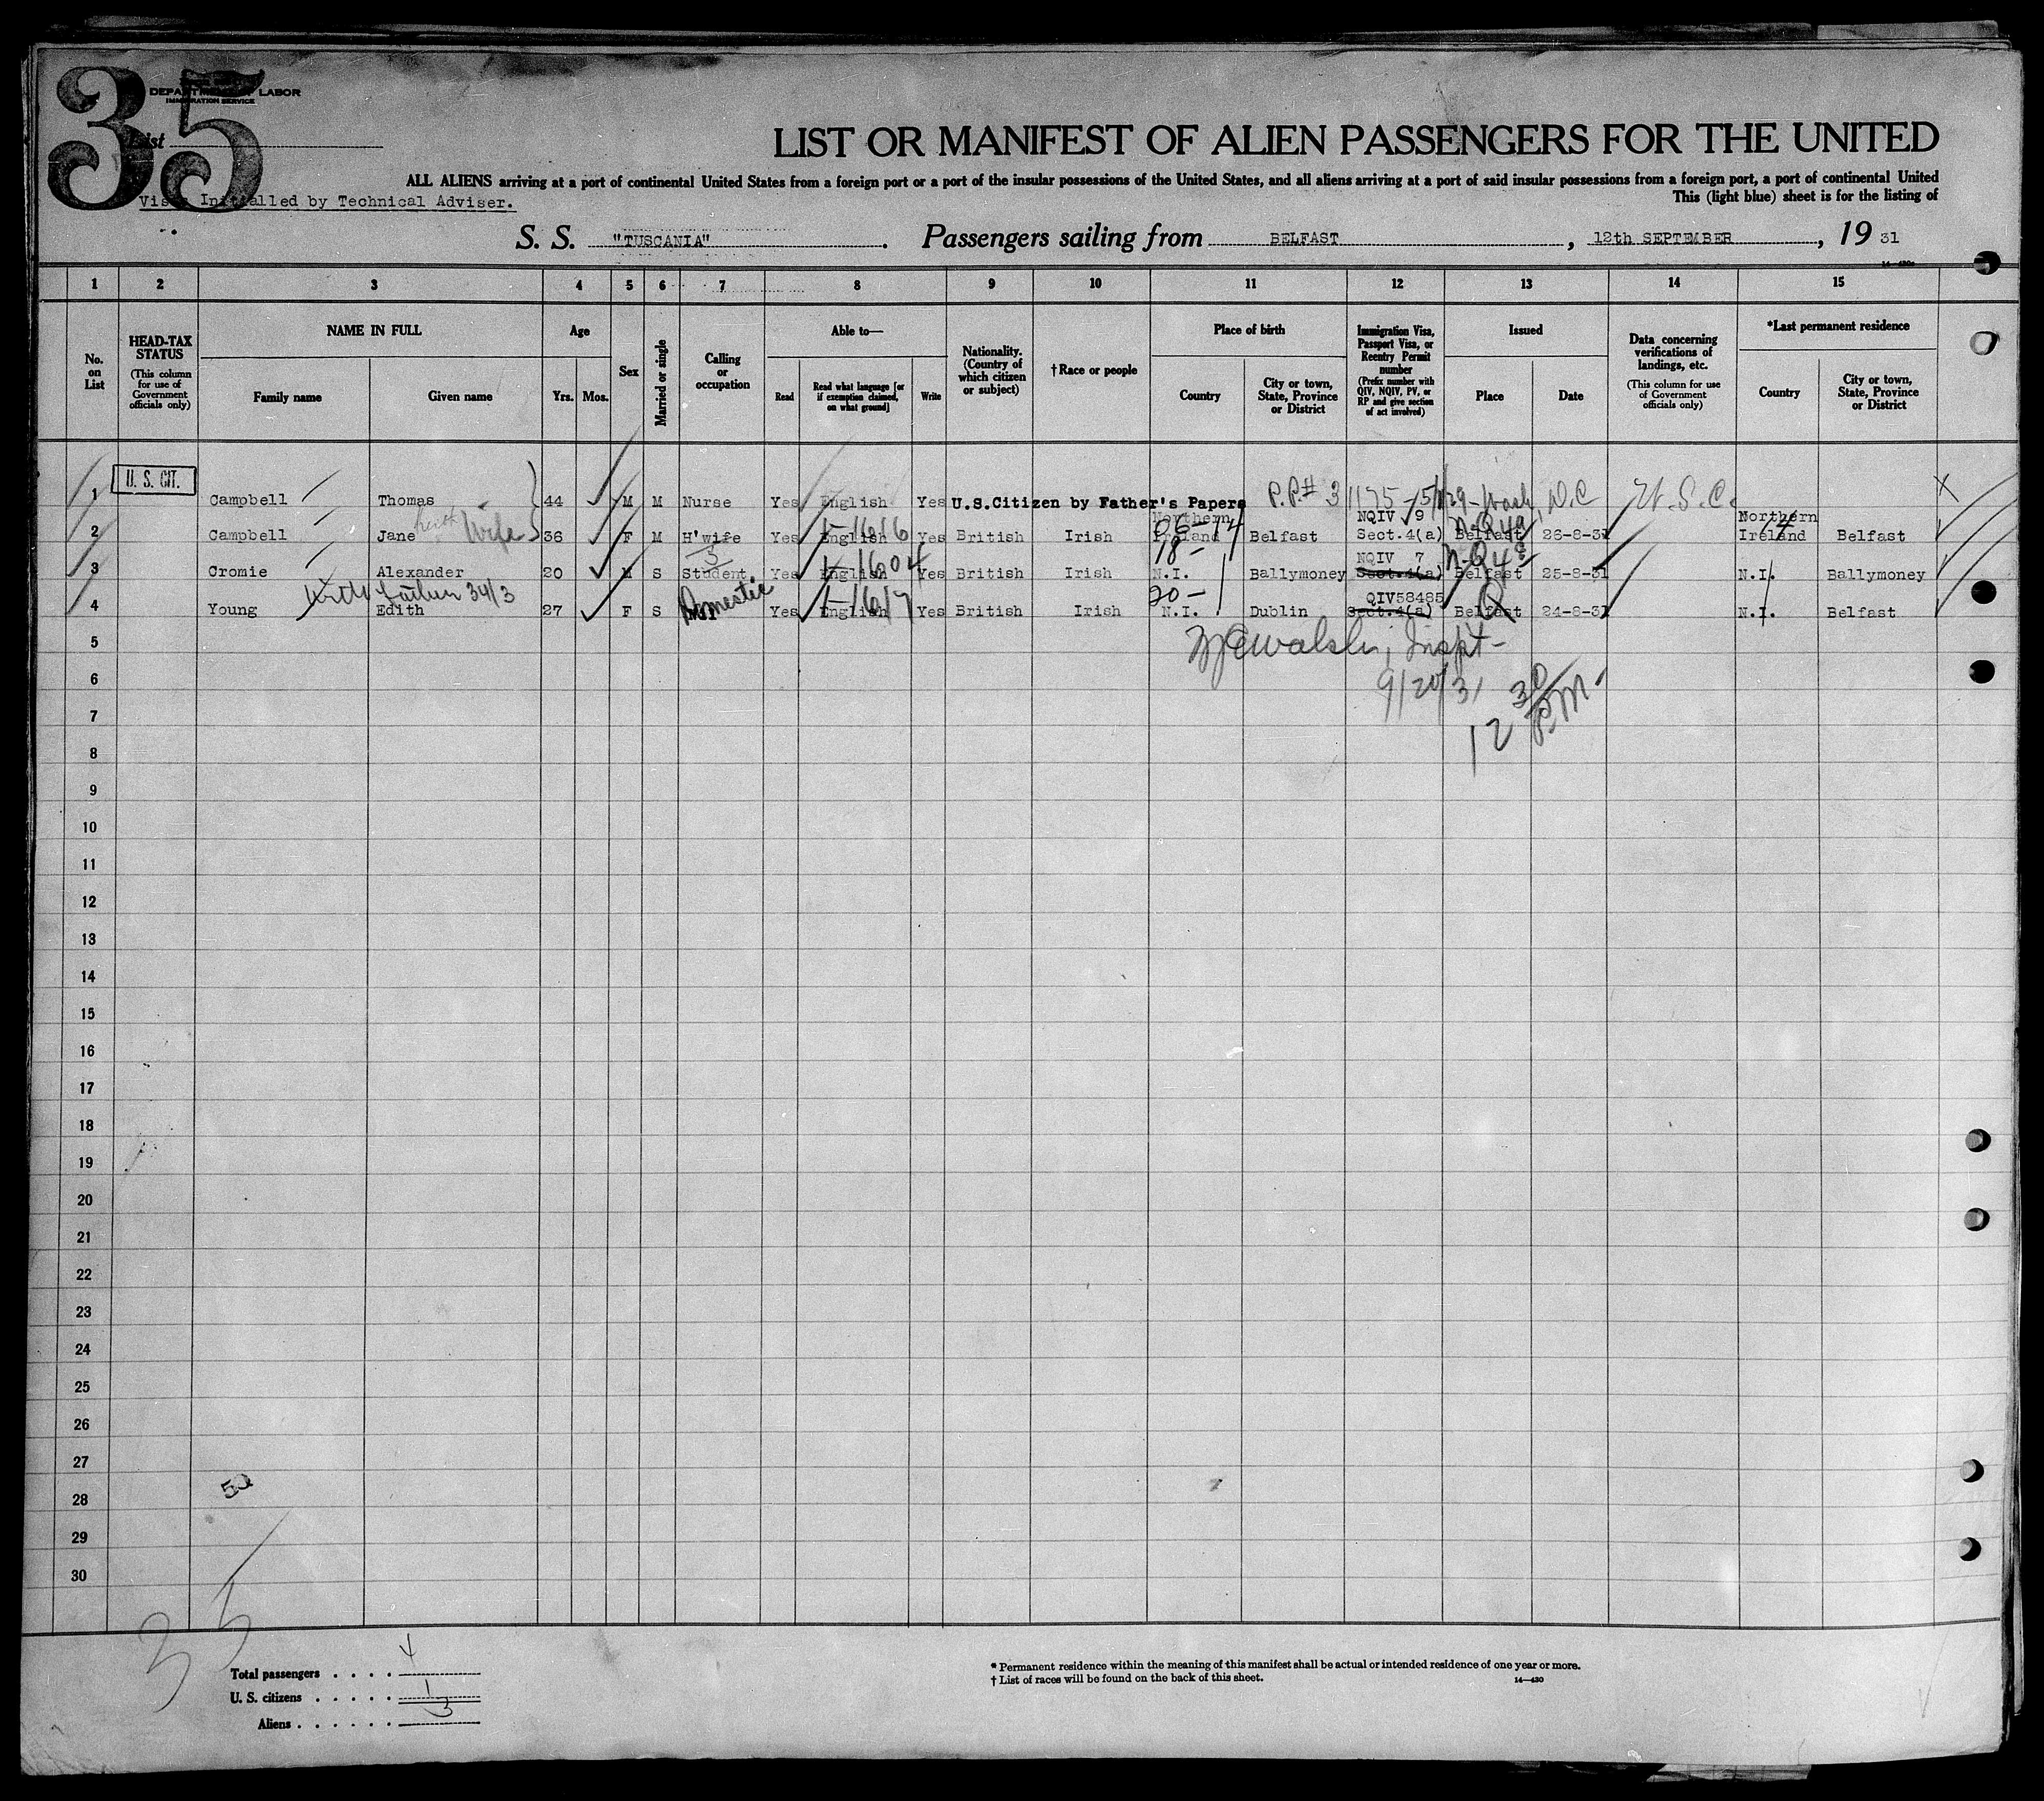 35
DEPARTMENT LABOR
IMMIGRATION SERVICE
List
LIST OR MANIFEST OF ALIEN PASSENGERS FOR THE UNITED
ALL ALIENS arriving at a port of continental United States from a foreign port or a port of the insular possessions of the United States, and all aliens arriving at a port of said insular possessions from a foreign port, a port of continental United
This (light blue) sheet is for the listing of
Initialled by Technical Adviser.
S. S. "TUSCANIA". Passengers sailing from BELFAST, 12th SEPTEMBER, 19 31
14—430
1 2 3 4 5 6 7 8 9 10 11 12 13 14 15
No. on List
HEAD-TAX STATUS (This column for use of Government officials only)
NAME IN FULL
Family name Given name
Age
Yrs. Mos.
Sex
Married or single
Calling or occupation
Able to—
Read Read what language [or if exemption claimed, on what ground] Write
Nationality. (Country of which citizen or subject)
†Race or people
Place of birth
Country City or town, State, Province or District
Immigration Visa, Passport Visa, or Reentry Permit number (Prefix number with QIV, NQIV, PV, or RP and give section of act involved)
Issued
Place Date
Data concerning verifications of landings, etc. (This column for use of Government officials only)
*Last permanent residence
Country City or town, State, Province or District
U. S. CIT.
1 Campbell Thomas 44 M M Nurse Yes English Yes U.S.Citizen by Father's Papers P.P.# 31175 - Wash, D.C U.S.C.
Wife
Northern NQIV 9 Northern
2 Campbell Jane 36 F M H'wife Yes English Yes British Irish Ireland Belfast Sect.4(a) Belfast 26-8-31 Ireland Belfast
18- NQIV 7
3 Cromie Alexander 20 M S Student Yes English Yes British Irish N.I. Ballymoney Sect.4(a) Belfast 25-8-31 N.I. Ballymoney
34/3 Domestic 20- QIV58485
4 Young Edith 27 F S Yes English Yes British Irish N.I. Dublin Sect.4(a) Belfast 24-8-31 N.I. Belfast
5
Walsh, Inspt-
6
9/20/31
12 30 P.M.
7
8
9
10
11
12
13
14
15
16
17
18
19
20
21
22
23
24
25
26
27
50
28
29
30
35
Total passengers . . . . 4
U. S. citizens . . . . . 1
Aliens . . . . . . 3
* Permanent residence within the meaning of this manifest shall be actual or intended residence of one year or more.
† List of races will be found on the back of this sheet.
14—430